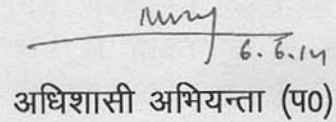 6.6.14
अधिशासी अभियन्ता (प0)